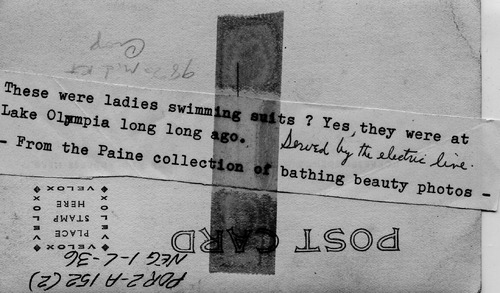 These were ladies swimming suits ? Yes, they were at
Lake Olympia long long ago. Served by the electric line.
- From the Paine collection of bathing beauty photos -
POST CARD
VELOX
PLACE
STAMP
HERE
VELOX
NEG 1-L-36
PDR2-A 152 (2)